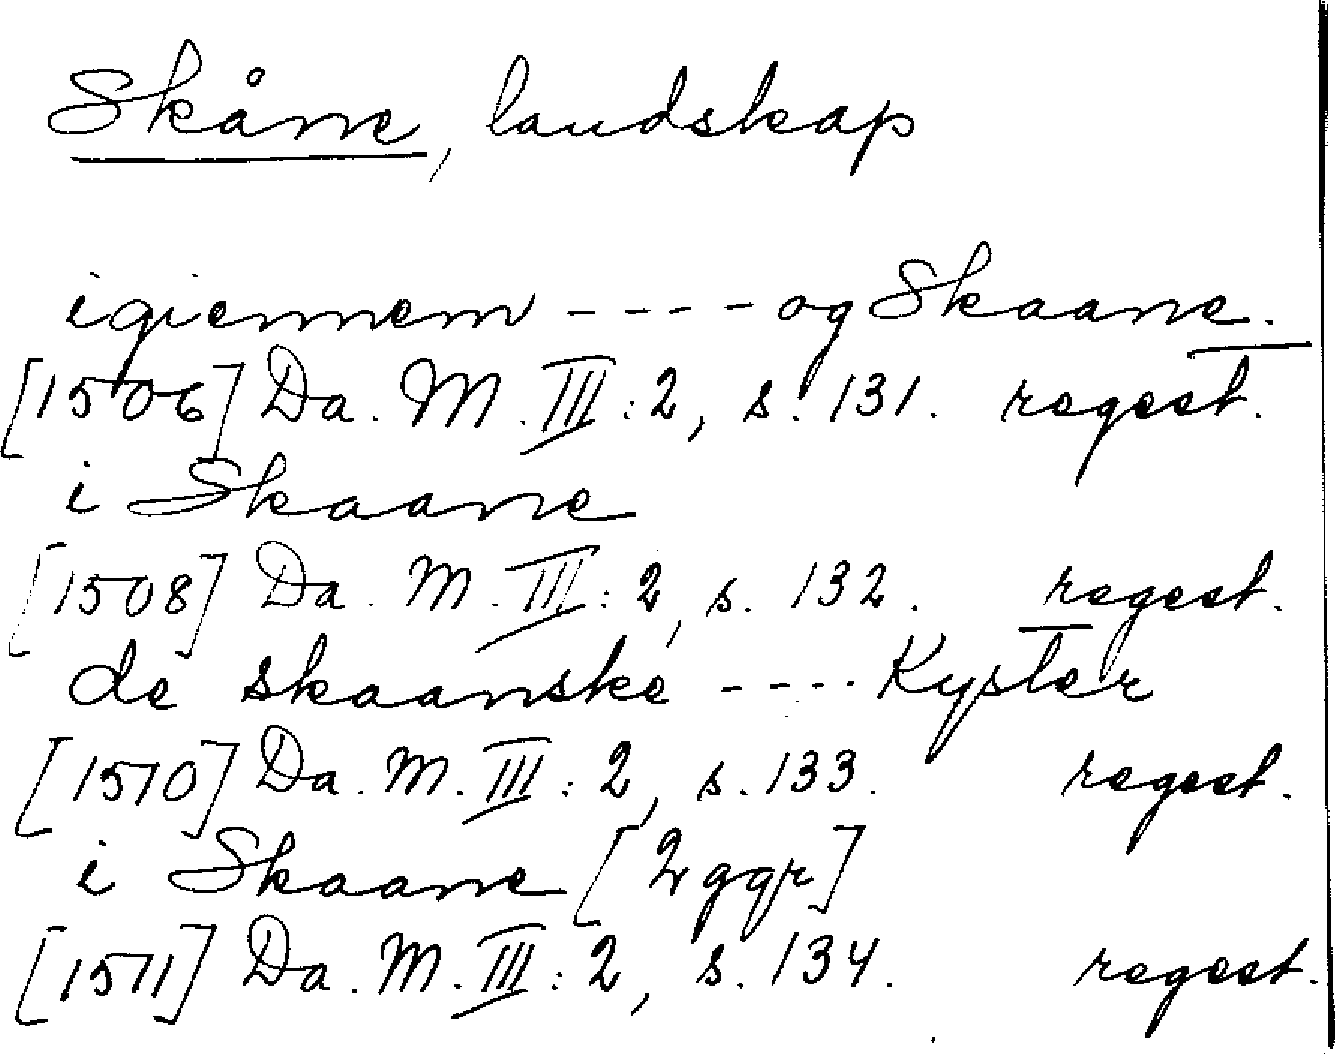 Skåne, landskap
igiennem ---- og Skaane.
[1506] Da. M. III: 2, s. 131. regest.
i Skaane
[1508] Da. M. III: 2, s. 132. regest.
de skaanske ---- Kyster
[1510] Da. M. III: 2, s. 133. regest.
i Skaane [2 ggr]
[1511] Da. M. III: 2, s. 134. regest.